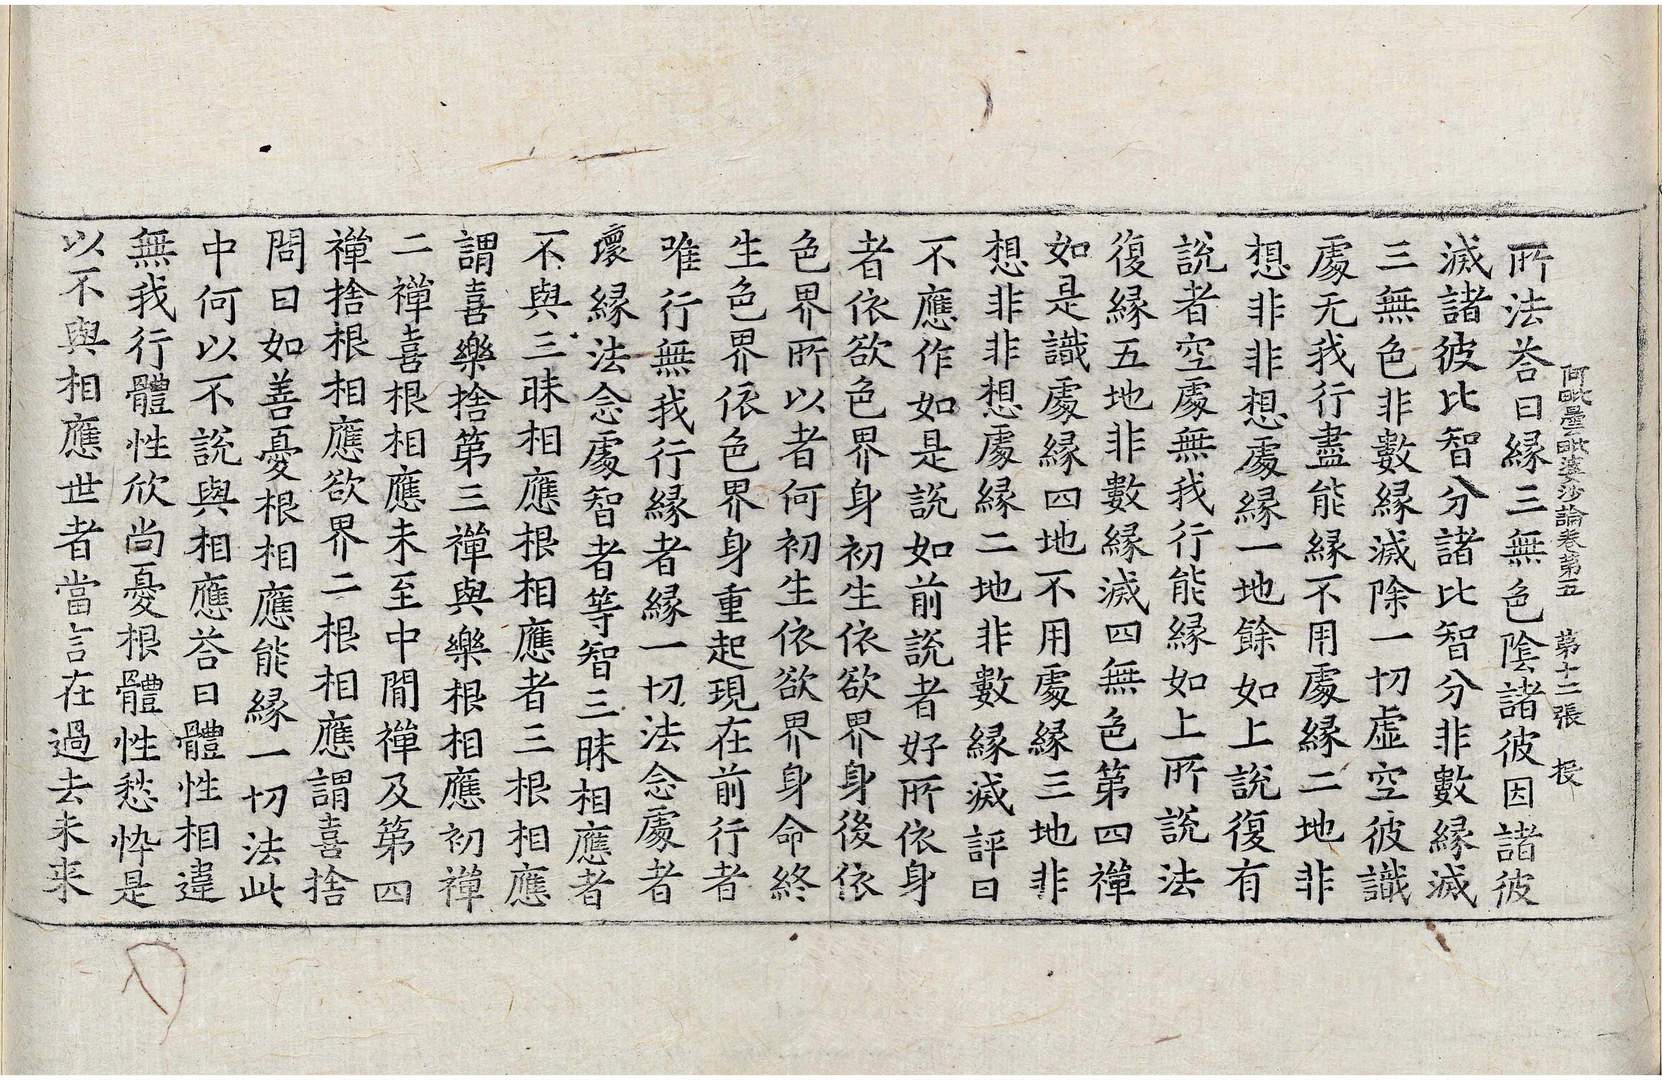 阿毗曇毗婆沙論卷第五　第十二張　投
所法荅曰緣三無色陰諸彼因諸彼
滅諸彼比智分諸比智分非數緣滅
三無色非數緣滅除一切虛空彼識
處无我行盡能緣不用處緣二地非
想非非想處緣一地餘如上說復有
說者空處無我行能緣如上所說法
復緣五地非數緣滅四無色第四禪
如是識處緣四地不用處緣三地非
想非非想處緣二地非數緣滅評曰
不應作如是說如前說者好所依身
者依欲色界身初生依欲界身後依
色界所以者何初生依欲界身命終
生色界依色界身重起現在前行者
唯行無我行緣者緣一切法念處者
壞緣法念處智者等智三昧相應者
不與三昧相應根相應者三根相應
謂喜樂捨第三禪與樂根相應初禪
二禪喜根相應未至中閒禪及第四
禪捨根相應欲界二根相應謂喜捨
問曰如善憂根相應能緣一切法此
中何以不說與相應荅曰體性相違
無我行體性欣尚憂根體性愁忰是
以不與相應世者當言在過去未来